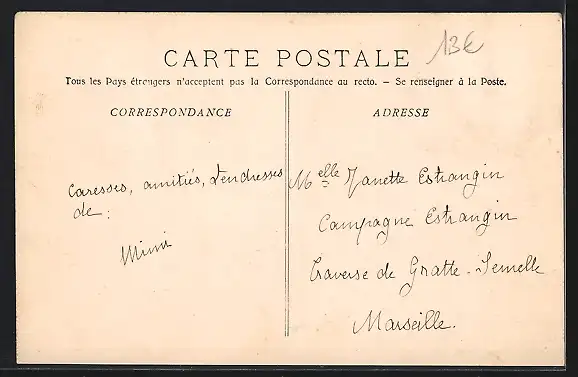 13€
CARTE POSTALE
Tous les Pays étrangers n'acceptent pas la Correspondance au recto. – Se renseigner à la Poste.
CORRESPONDANCE
Caresses, amitiés, tendresses
de :
Mimi
ADRESSE
Melle Nanette Estrangin
Campagne Estrangin
Traverse de Gratte-Semelle
Marseille.